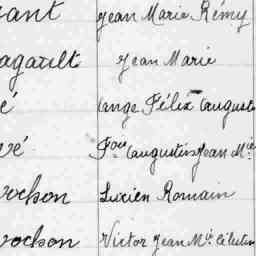 ant Jean Marie Rémy
agault Jean Marie
é Ange Félix Auguste
vé Fois Augustin Jean Mie
ochon Lucien Romain
ochon Victor Jean Mie Célestin